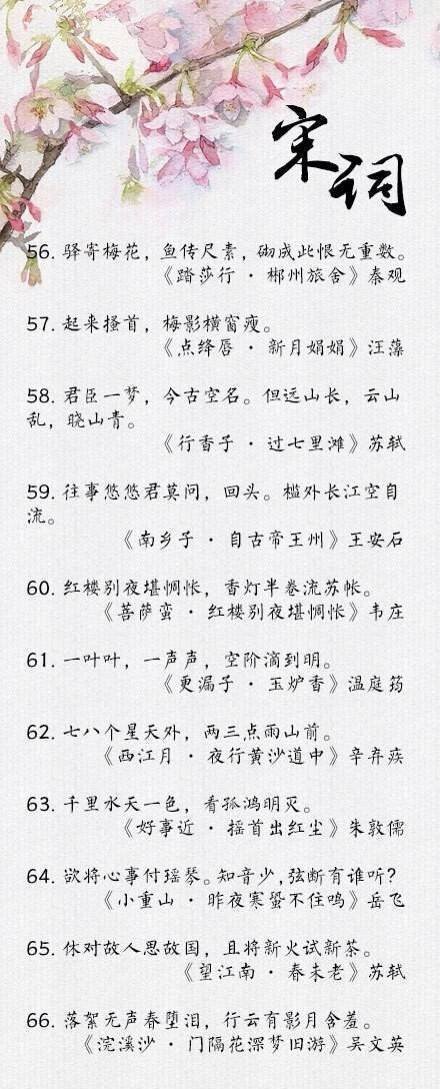 宋词
56. 驿寄梅花，鱼传尺素，砌成此恨无重数。
《踏莎行 · 郴州旅舍》秦观
57. 起来搔首，梅影横窗瘦。
《点绛唇 · 新月娟娟》汪藻
58. 君臣一梦，今古空名。但远山长，云山
乱，晓山青。
《行香子 · 过七里滩》苏轼
59. 往事悠悠君莫问，回头。槛外长江空自
流。
《南乡子 · 自古帝王州》王安石
60. 红楼别夜堪惆怅，香灯半卷流苏帐。
《菩萨蛮 · 红楼别夜堪惆怅》韦庄
61. 一叶叶，一声声，空阶滴到明。
《更漏子 · 玉炉香》温庭筠
62. 七八个星天外，两三点雨山前。
《西江月 · 夜行黄沙道中》辛弃疾
63. 千里水天一色，看孤鸿明灭。
《好事近 · 摇首出红尘》朱敦儒
64. 欲将心事付瑶琴。知音少,弦断有谁听?
《小重山 · 昨夜寒蛩不住鸣》岳飞
65. 休对故人思故国，且将新火试新茶。
《望江南 · 春未老》苏轼
66. 落絮无声春堕泪，行云有影月含羞。
《浣溪沙 · 门隔花深梦旧游》吴文英